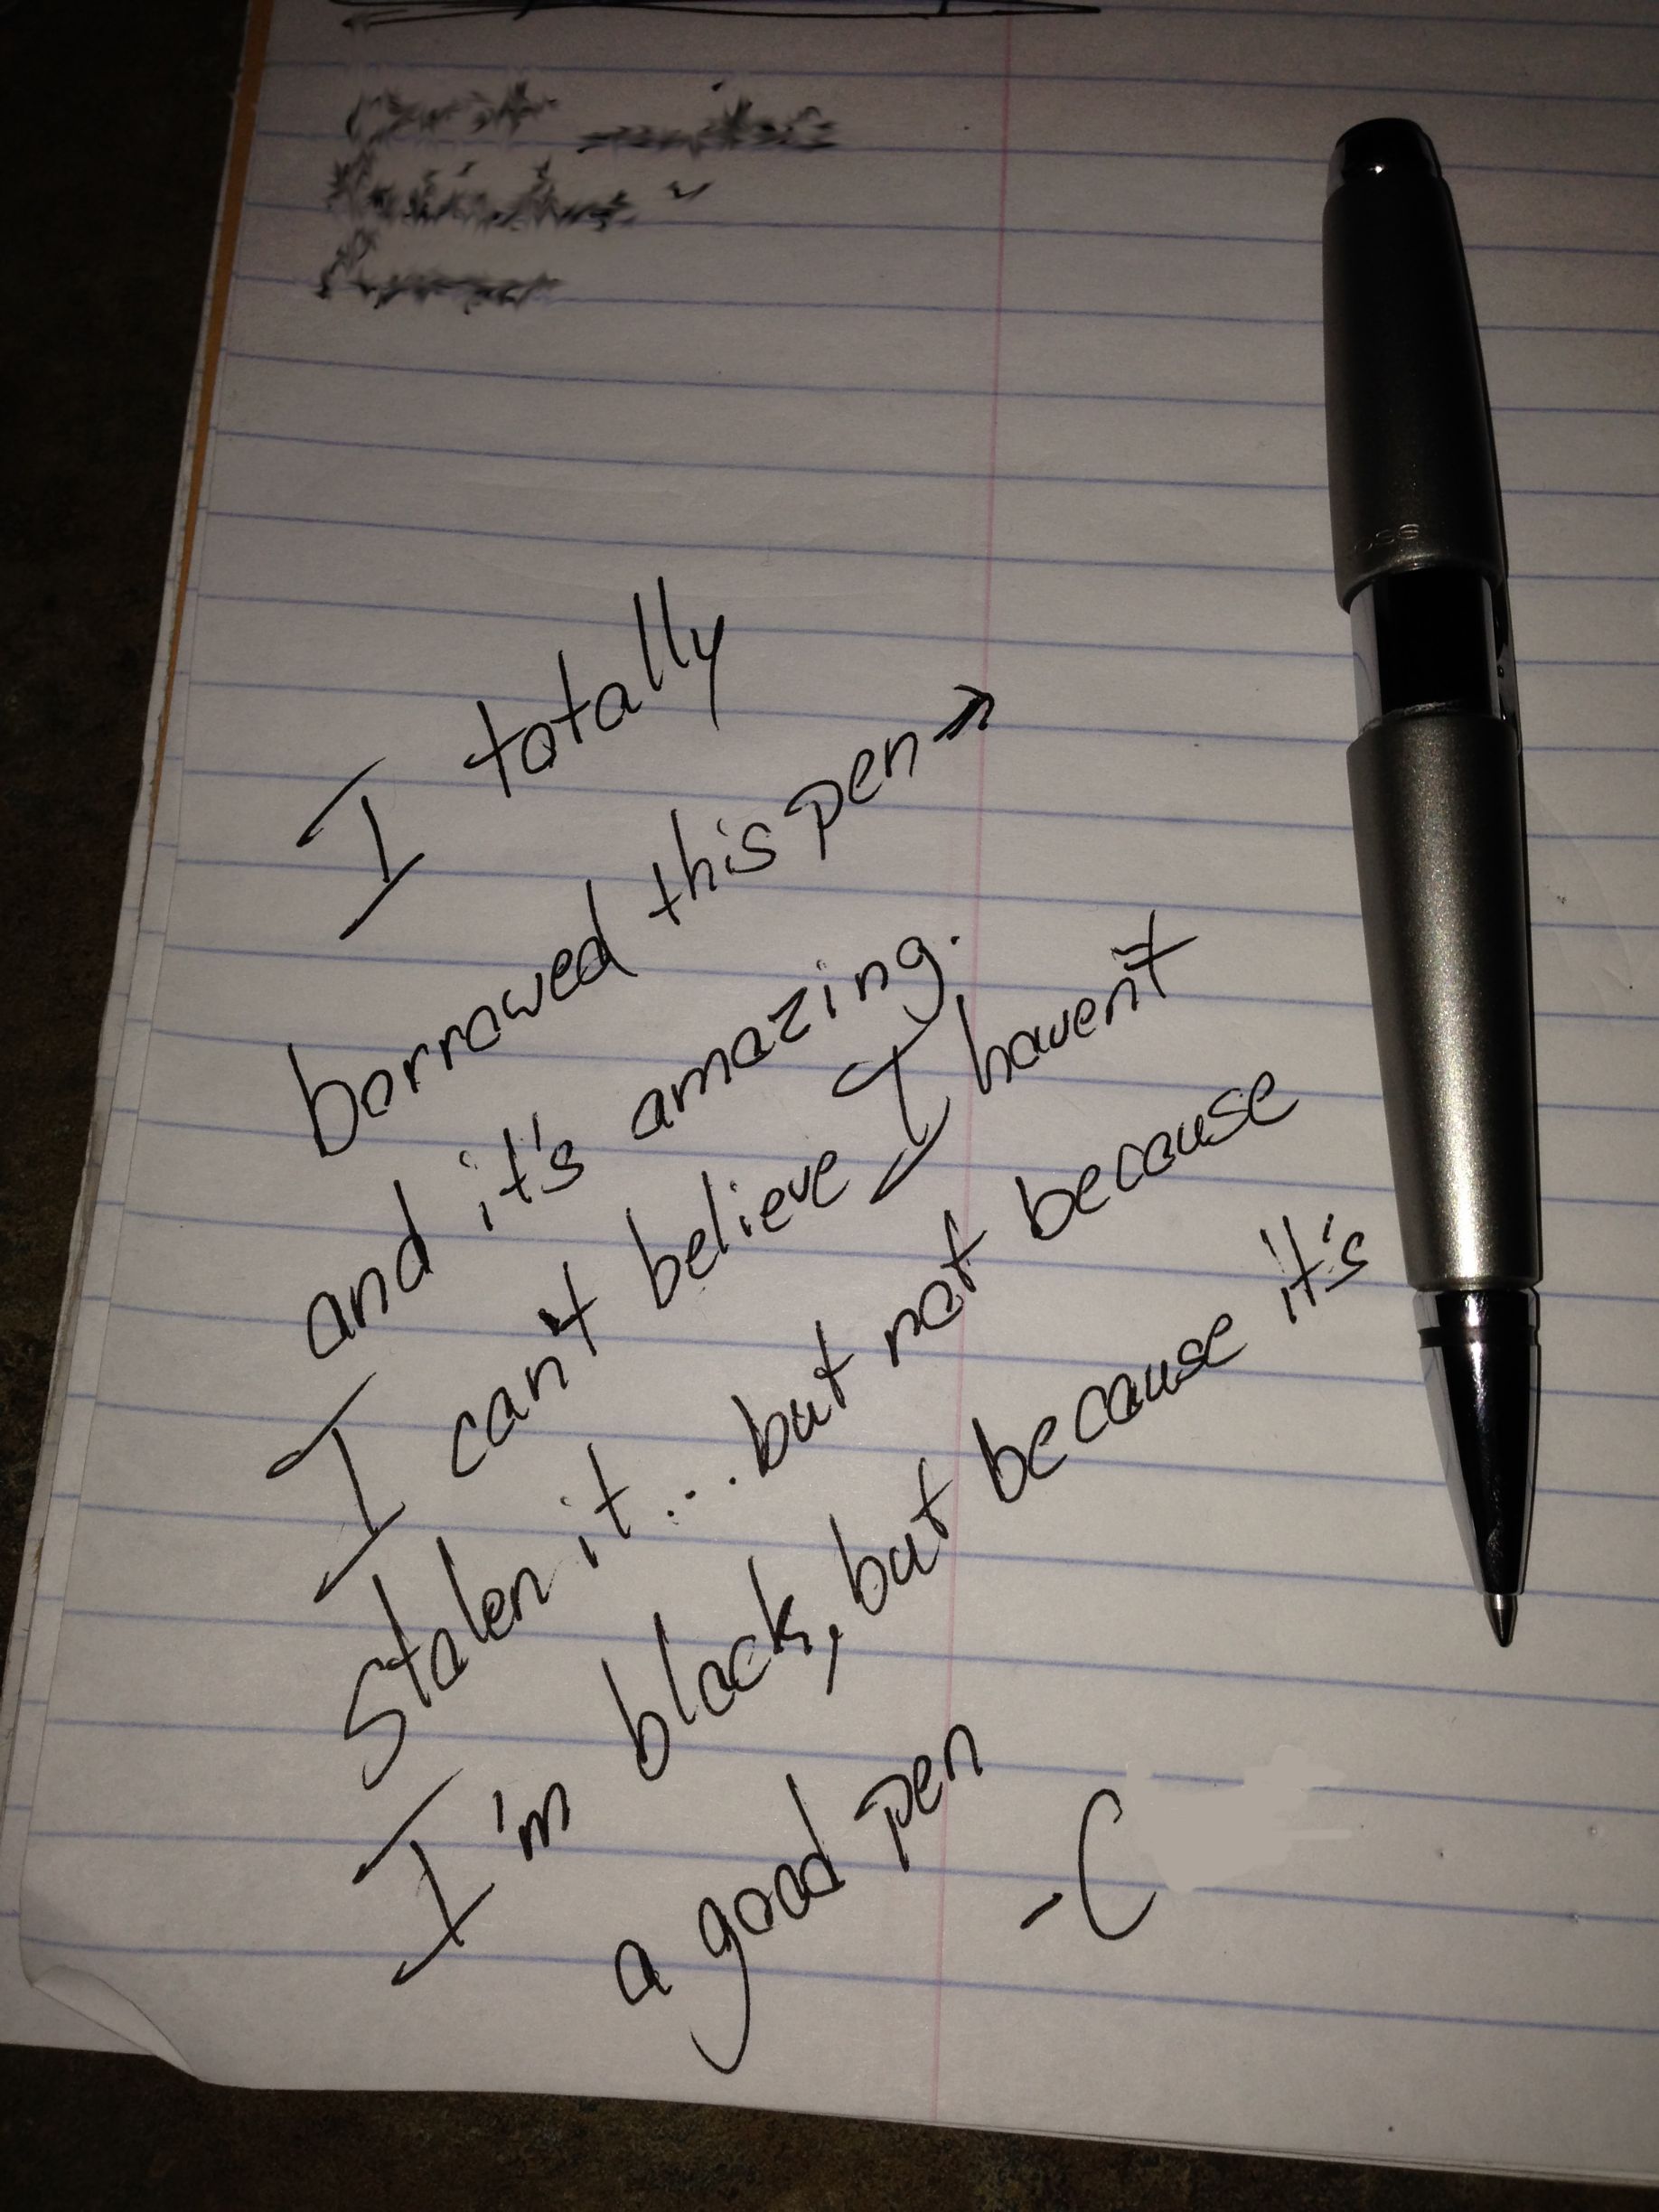 I totally
borrowed this pen →
and it's amazing.
I can't believe I haven't
stolen it... but not because
I'm black, but because it's
a good pen
-C